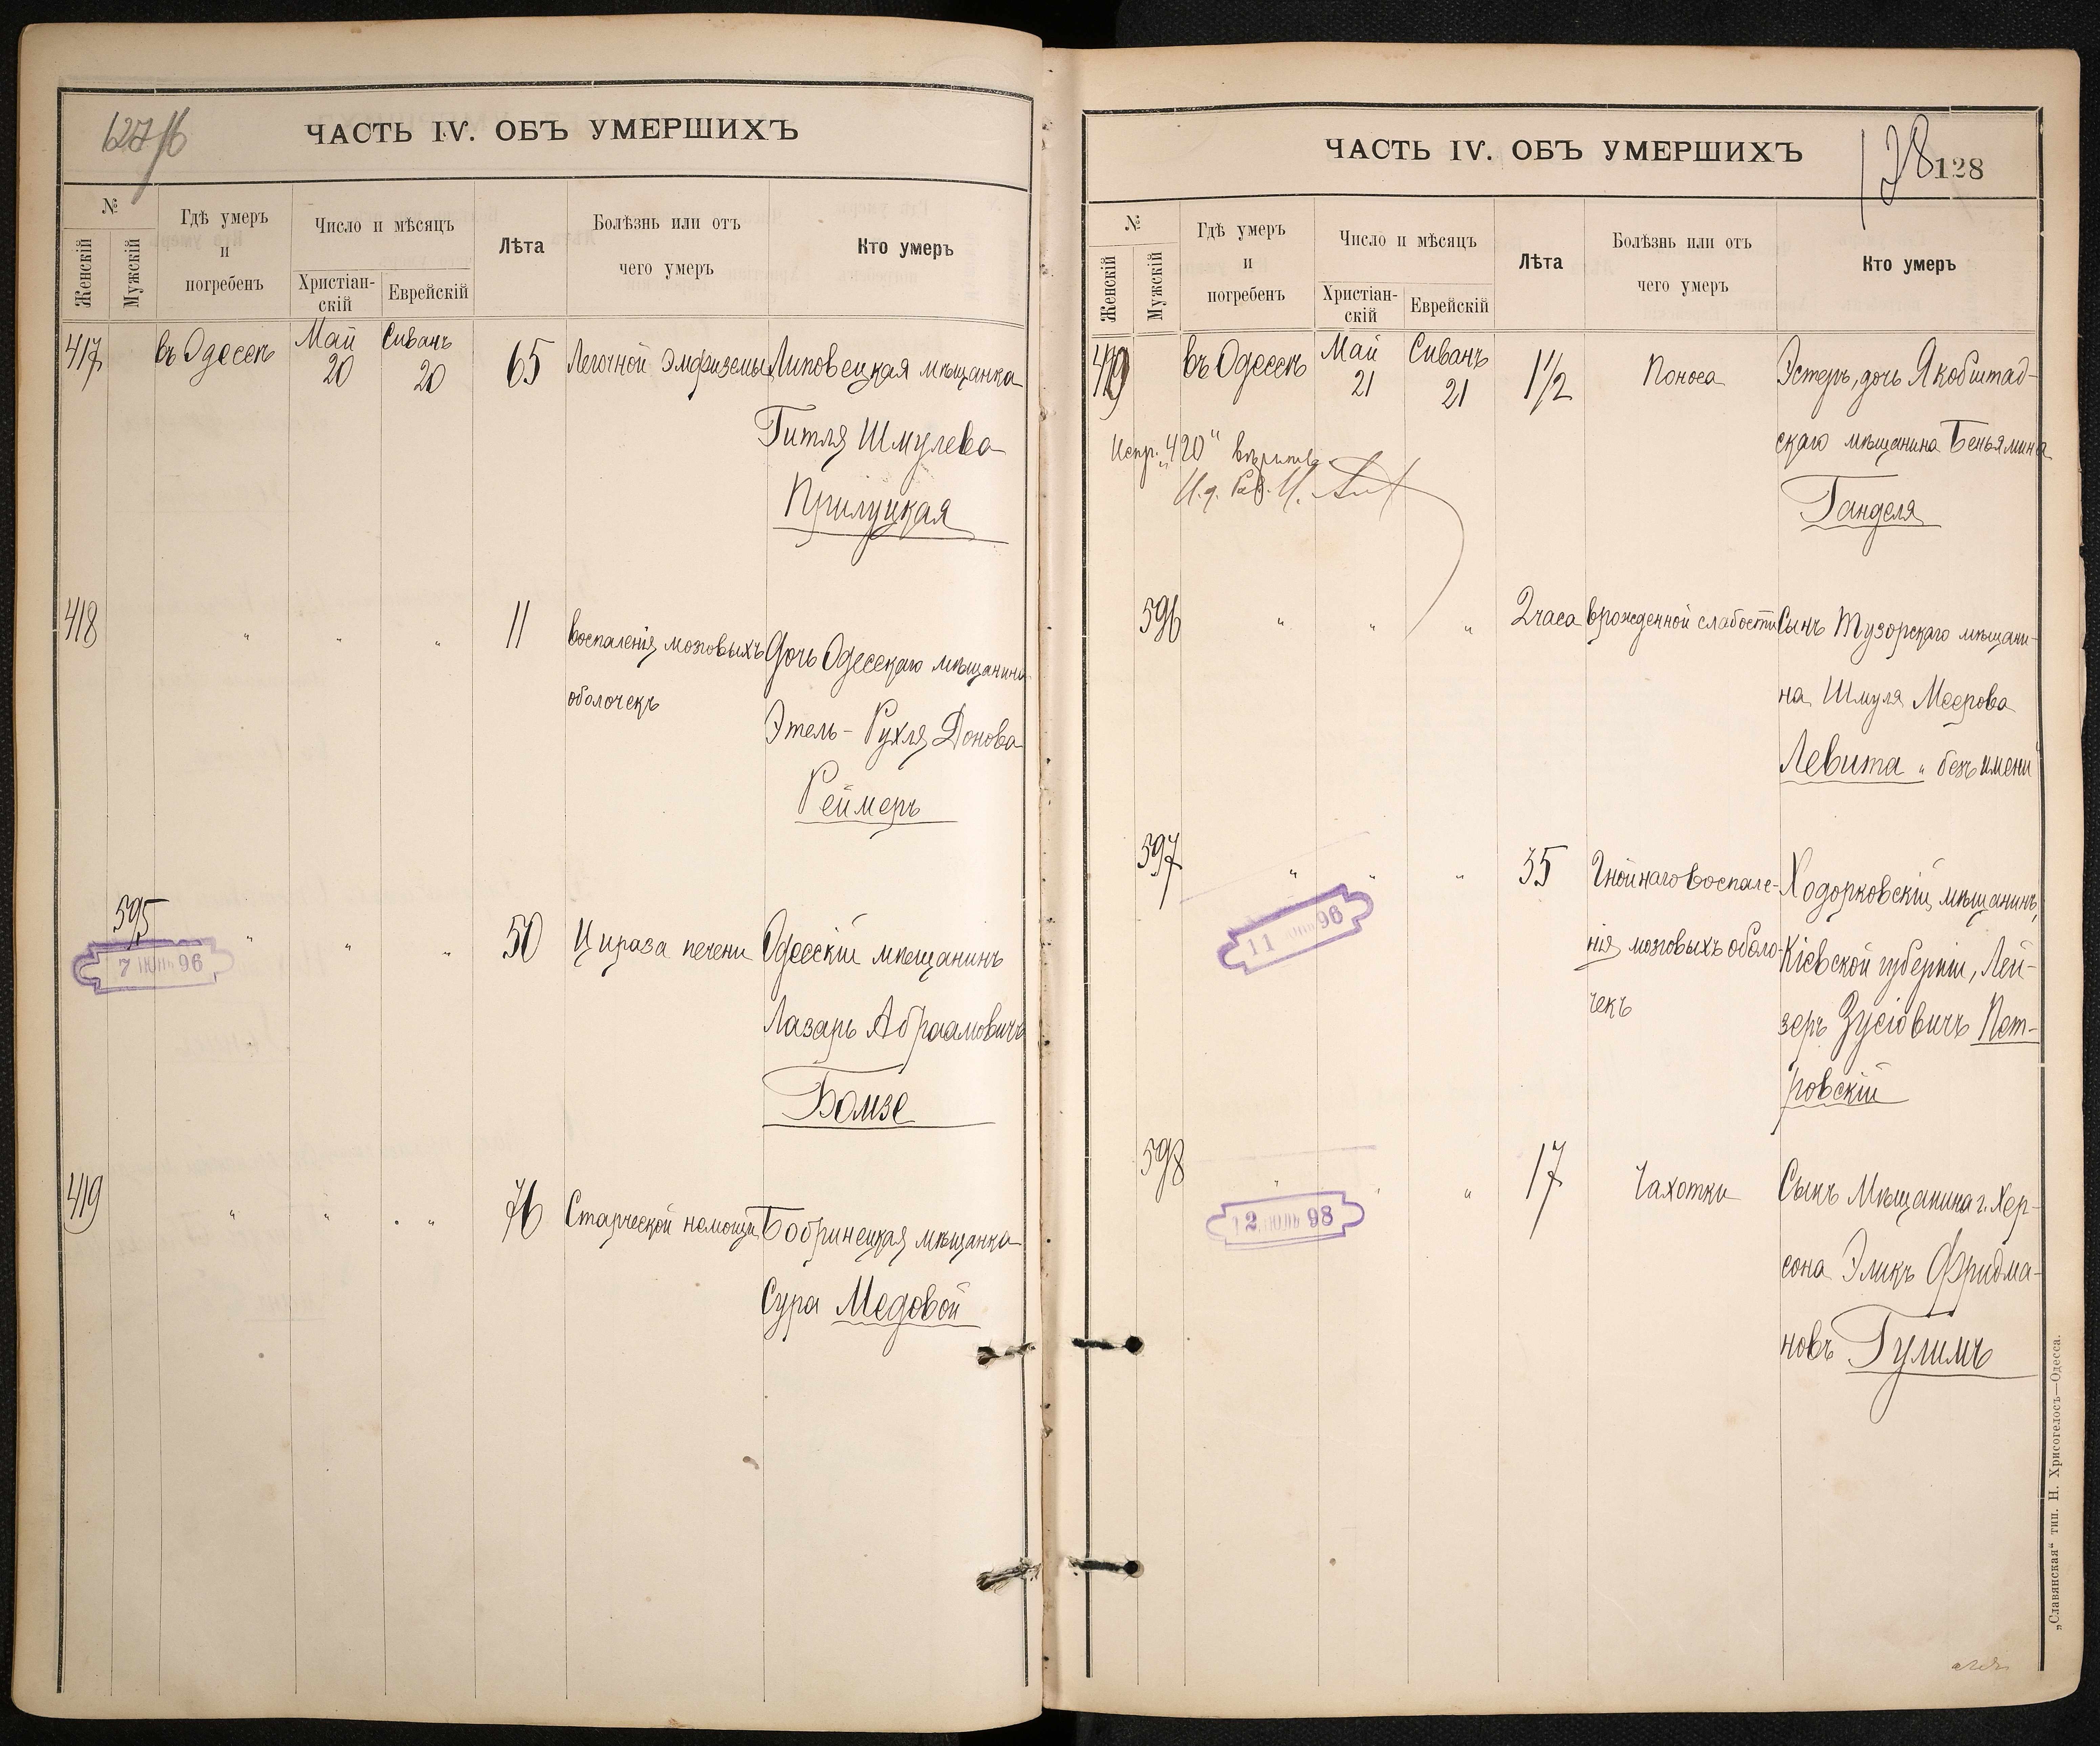 127/б
ЧАСТЬ IV. ОБЪ УМЕРШИХЪ
№
Женскій
Мужскій
Гдѣ умеръ
и
погребенъ
Число и мѣсяцъ
Христіан-
скій
Еврейскій
Лѣта
Болѣзнь или отъ
чего умеръ
Кто умеръ
417 въ Одессѣ Май 20 Сиванъ 20 65 Легочной эмфиземы Липовецкая мѣщанка
Гитля Шмулева
Прилуцкая
418 " " " 11 воспаленія мозговыхъ Дочь Одесскаго мѣщанина
оболочекъ Этель-Рухля Донова
Реймеръ
595 " " " 50 Цираза печени Одесскій мѣщанинъ
7 ІЮНЬ 96
Лазарь Абраамовичъ
Бомзе
419 " " " 76 Старческой немощи Бобринецкая мѣщанка
Сура Медовой
ЧАСТЬ IV. ОБЪ УМЕРШИХЪ
128 128
№
Женскій
Мужскій
Гдѣ умеръ
и
погребенъ
Число и мѣсяцъ
Христіан-
скій
Еврейскій
Лѣта
Болѣзнь или отъ
чего умеръ
Кто умеръ
въ Одессѣ Май 21 Сиванъ 21 1½ Поноса Эстеръ, дочь Якобштад-
скаго мѣщанина Беньямина
Ганделя
Испр. "420" вѣрить
И. д. Рав.
596 " " " 2 часа врожденной слабости Сынъ Тузорскаго мѣщани-
на Шмуля Меерова
Левита " безъ имени
597 " " " 35 Гнойнаго воспале- Ходорковскій мѣщанинъ,
нія мозговыхъ оболо- Кіевской губерніи, Лей-
чекъ зеръ Зусіовичъ Пет-
ровскій
11 96
598 " " " 17 Чахотки Сынъ Мѣщанина г. Хер-
12 ІЮНЬ 98
сона Эликъ Фридма-
новъ Гулимъ
„Славянская“ тип. Н. Хрисогелосъ—Одесса.